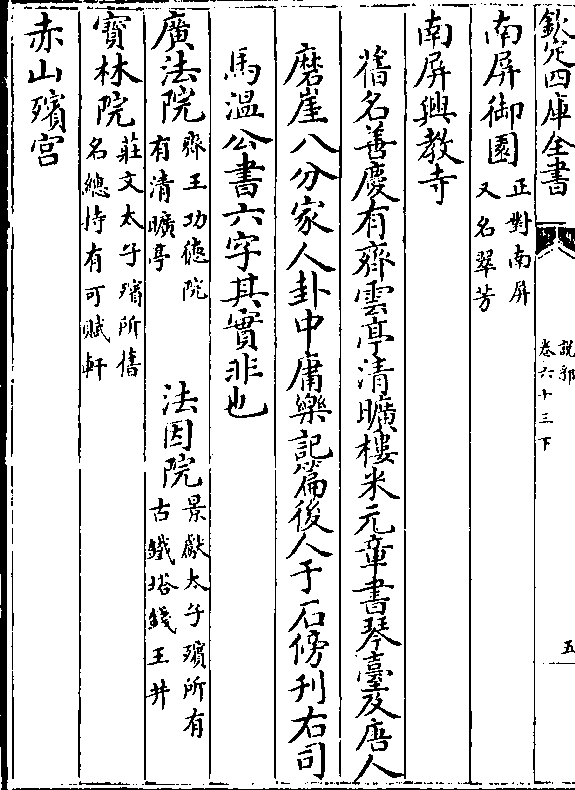 欽定四庫全書
說郛
卷六十三下
五
南屏御園正對南屏
又名翠芳
南屏興教寺
舊名善慶有齊雲亭清曠樓米元章書琴臺及唐人
磨崖八分家人卦中庸樂記篇後人于石傍刊右司
馬溫公書六字其實非也
廣法院齊王功德院
有清曠亭
法因院景獻太子殯所有
古鐵塔錢王井
寶林院莊文太子殯所舊
名總持有可賦軒
赤山殯宮